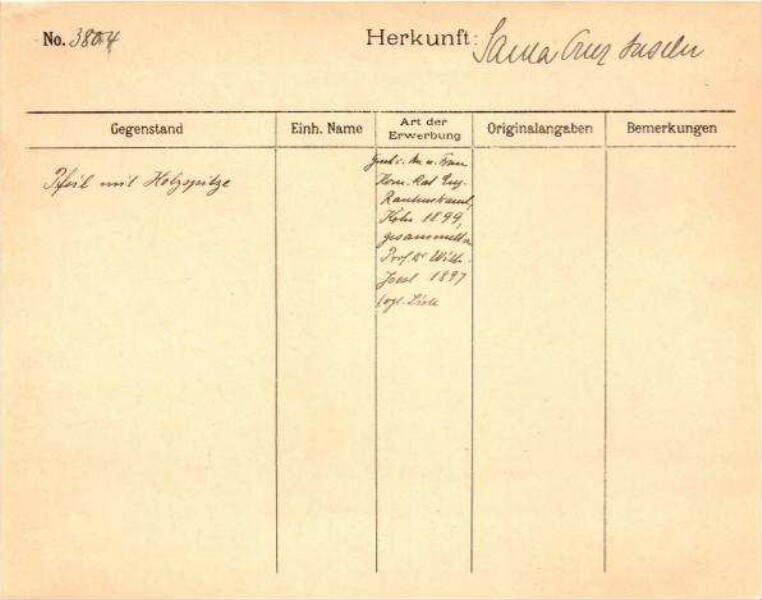 No. 3804
Herkunft: Santa Cruz Inseln
Gegenstand
Einh. Name
Art der
Erwerbung
Originalangaben
Bemerkungen
Pfeil mit Holzspitze
u. Frau
Kom. Rat Eug.
Rautenstrauch,
Köln 1899,
gesammelt v.
Prof. Dr. Wilh.
Joest 1897
vgl. Liste